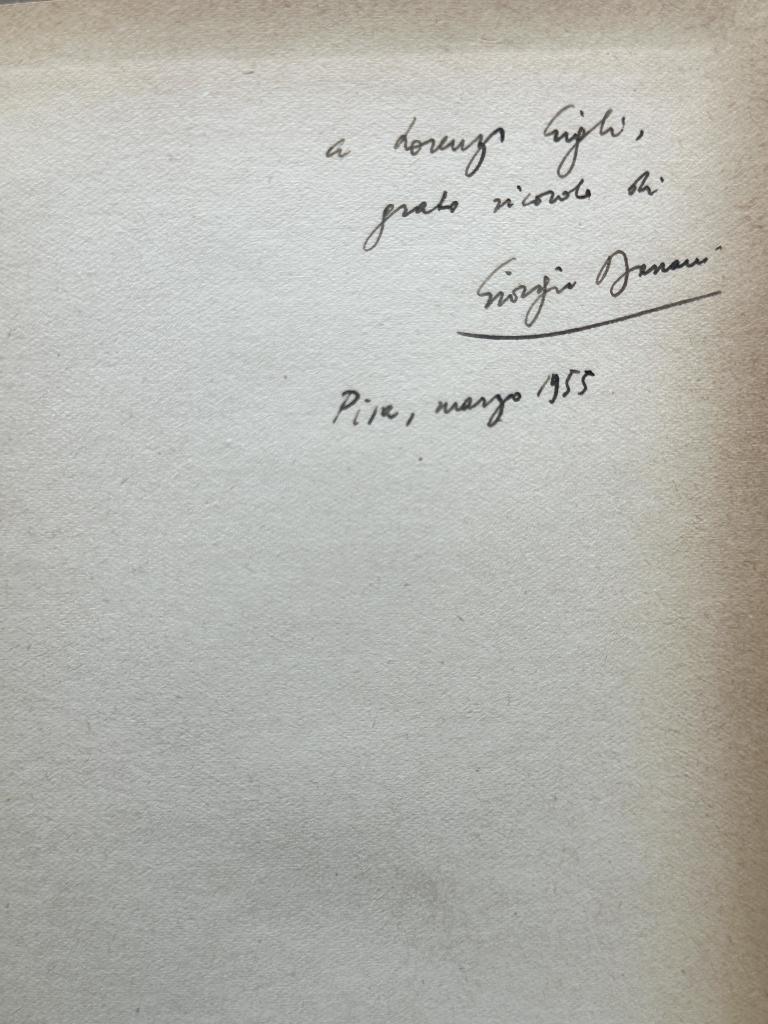 a Lorenzo Gigli,
grato ricordo di
Giorgio Bassani
Pisa, marzo 1955